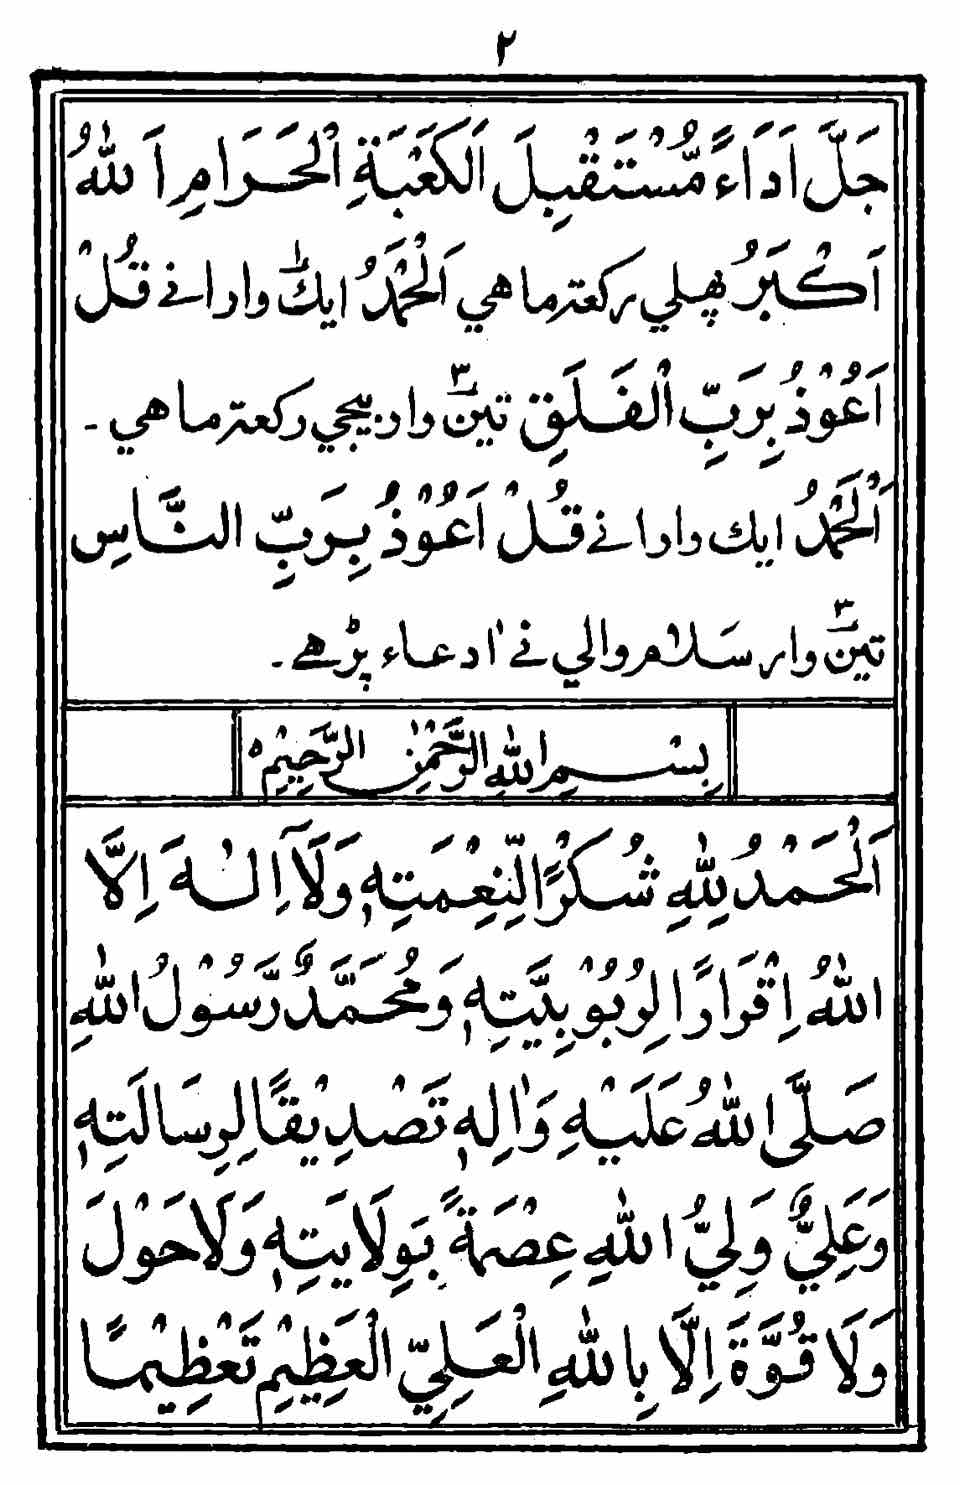 ٢
جَلَّ اَدَاءً مُّسْتَقْبِلَ الْكَعْبَةِ الْحَرَامِ اَللهُ
اَكْبَرُ پهلي ركعة ما هي اَلْحَمْدُ ايك وار انے قُلْ
اَعُوْذُ بِرَبِّ الْفَلَقِ تين ٣ وار بيجي ركعة ما هي ۔
اَلْحَمْدُ ايك وار انے قُلْ اَعُوْذُ بِرَبِّ النَّاسِ
تين ٣ وار سَلام والي نے اٰ دعاء پڑهے ۔
بِسْمِ اللهِ الرَّحْمٰنِ الرَّحِيْمِ
اَلْحَمْدُ لِلّٰهِ شُكْرًا لِّنِعْمَتِهٖ وَلَآ اِلٰهَ اِلَّا
اللهُ اِقْرَارًا لِرُبُوْبِيَّتِهٖ وَمُحَمَّدٌ رَّسُوْلُ اللهِ
صَلَّى اللهُ عَلَيْهِ وَاٰلِهٖ تَصْدِيْقًا لِرِسَالَتِهٖ
وَعَلِيٌّ وَلِيُّ اللهِ عِصْمَةً بِوِلَايَتِهٖ وَلَا حَوْلَ
وَلَا قُوَّةَ اِلَّا بِاللهِ الْعَلِيِّ الْعَظِيْمِ تَعْظِيْمًا